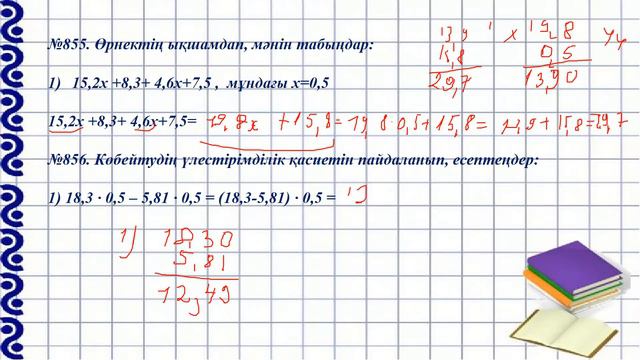 №855. Өрнектің ықшамдап, мәнін табыңдар:
13 9
15,8
29,7
x 19,8
0,5
13,90
1) 15,2х +8,3+ 4,6х+7,5 , мұндағы х=0,5
15,2х +8,3+ 4,6х+7,5= 19,8x +15,8=19,8·0,5+15,8= +15,8=29,7
№856. Көбейтудің үлестірімділік қасиетін пайдаланып, есептеңдер:
1) 18,3 · 0,5 – 5,81 · 0,5 = (18,3-5,81) · 0,5 = 1)
1) 18,30
5,81
12,49